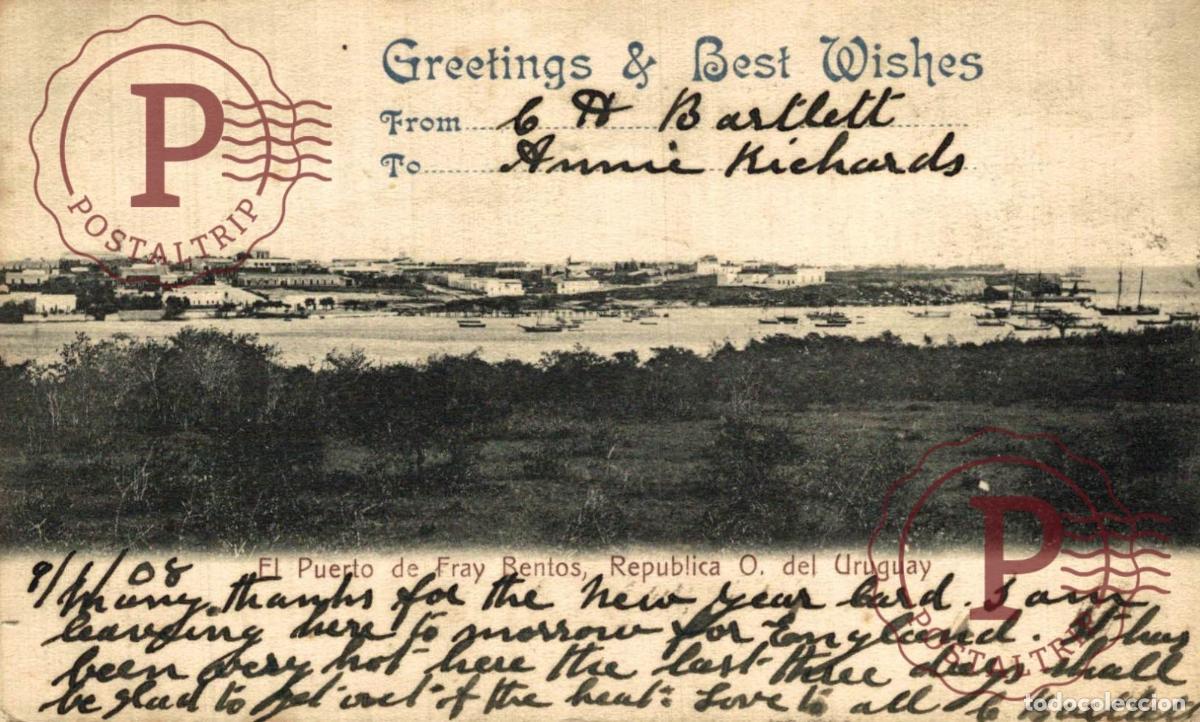 Greetings & Best Wishes
From C H Bartlett
To Annie Richards
P
POSTALTRIP
El Puerto de Fray Bentos, Republica O. del Uruguay
9/1/08
Many thanks for the New year Card. I am
leaving here to morrow for England. It has
been very hot here the last three days shall
be glad to get out of the heat. Love to all C
P
POSTALTRIP
todocoleccion